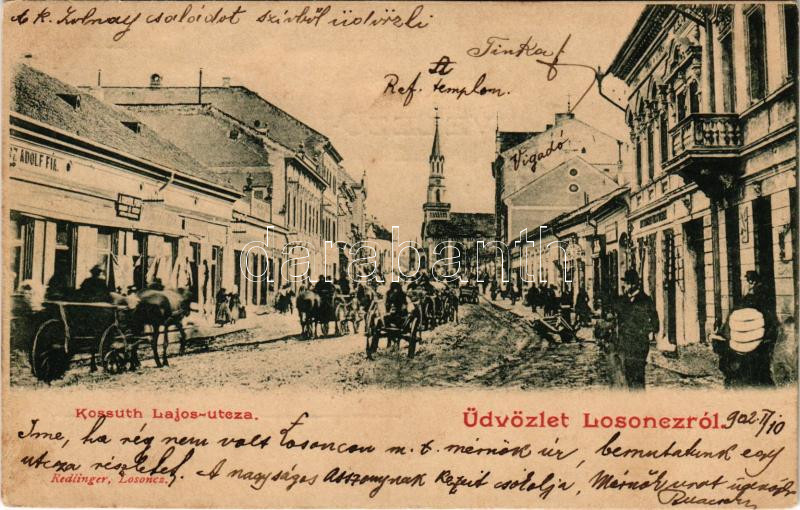 A k. Zolnay családot szívből üdvözli
Tinka
A
Ref. templom.
Vigadó
Z ADOLF FIA
darabanth.com
Kossuth Lajos-utcza.
Üdvözlet Losonczról. 902. II/10
Íme, ha rég nem volt Losoncon m. t. mérnök úr, bemutatunk egy
utcza részletet. A nagyságos Asszonynak kezeit csókolja, Mérnök urat
Redlinger, Losoncz.